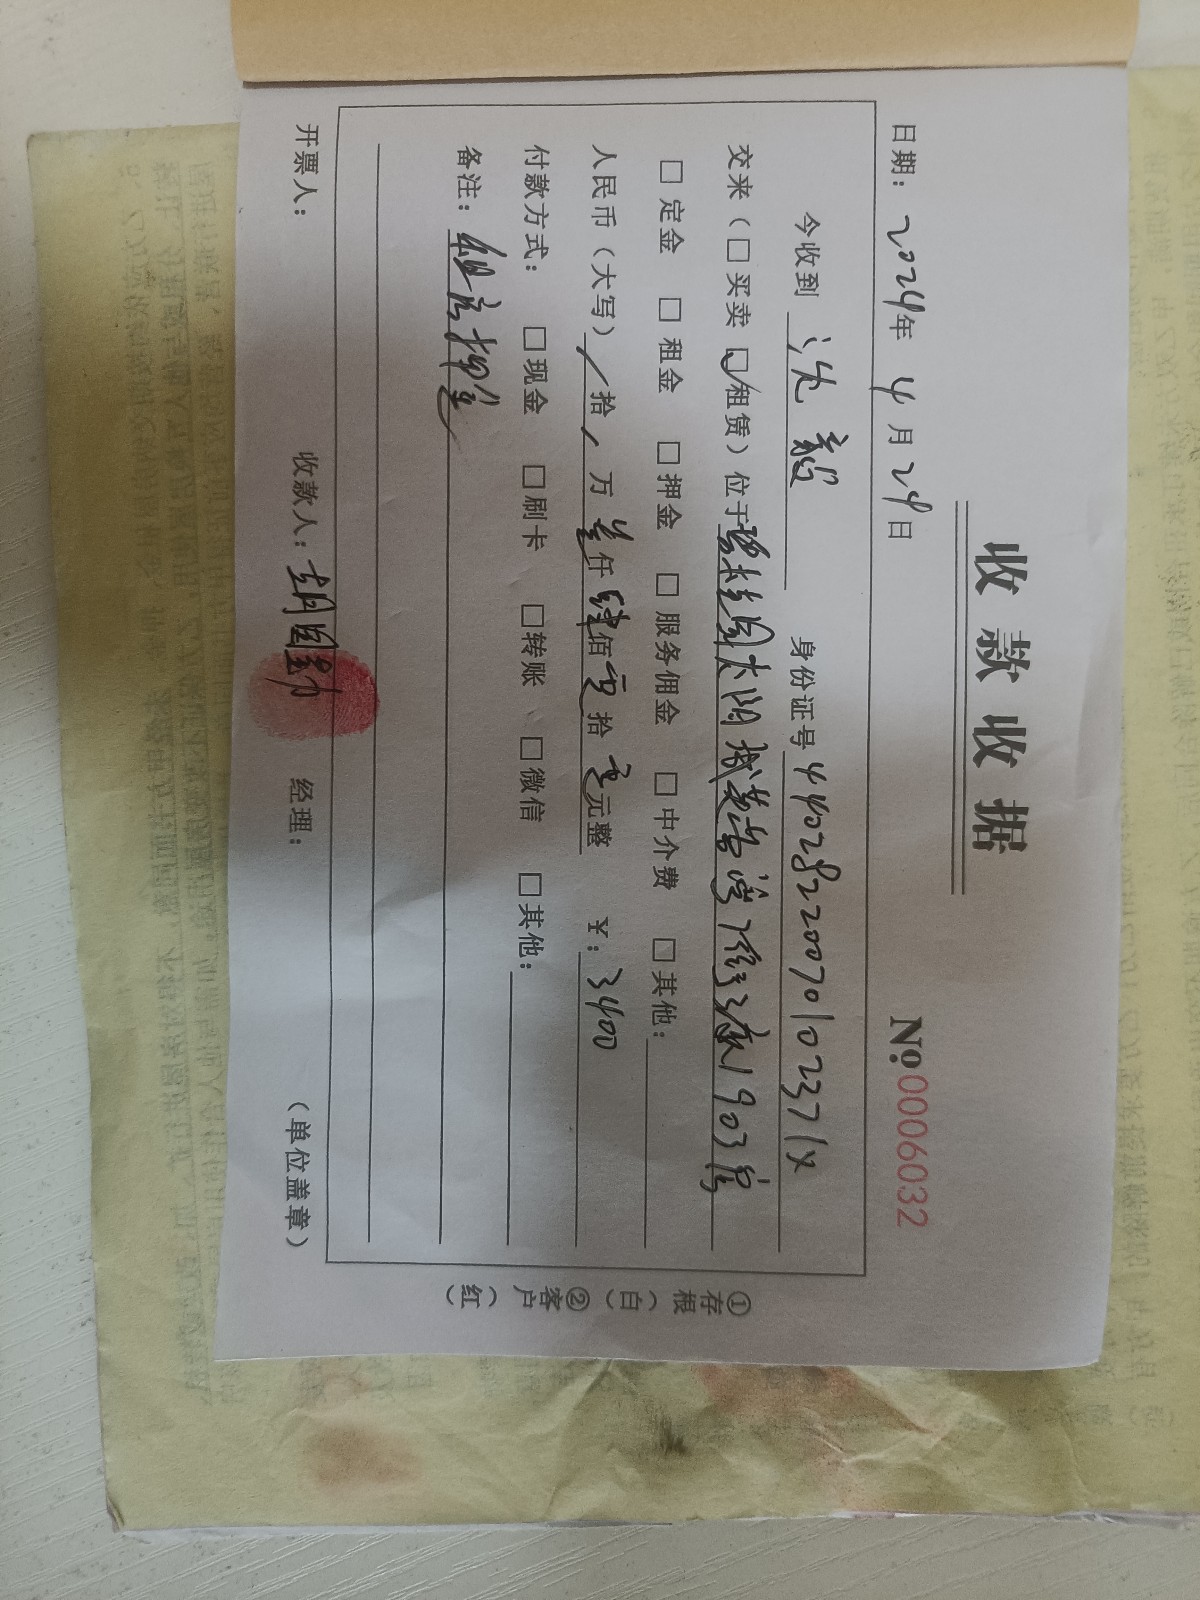 收款收据
日期: 2024年 4月 24日 №0006032
今收到 沈毅 身份证号 44028220070102371X
交来(□买卖 ☑租赁)位于 1903房
□定金 □租金 □押金 □服务佣金 □中介费 □其他:
人民币(大写) / 拾 / 万 叁仟肆佰零拾零元整 ¥: 3400
付款方式: □现金 □刷卡 □转账 □微信 □其他:
备注: 租房押金
开票人: 收款人: 经理: (单位盖章)
①存根(白) ②客户(红)